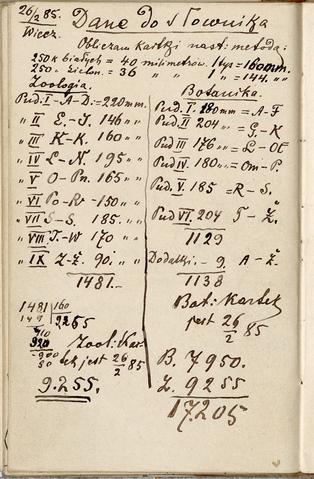 26/2 85. Dane do słownika
Wiecz.
Obliczam kartki nast: metodą:
250 k białych = 40 milimetrów. 1 tys = 160 mm.
250 „ zielon. = 36 „ „ 1 „ = 144. „ „
Zoologia.
Pud. I - A-D: = 220 mm.
„ II E.-J. 146 „ „
„ III K-K. 160 „ „
„ IV L-N. 195 „ „
„ V O-Pn. 165 „ „
„ VI Po-Rt - 150 „ „
„ VII S-S. 185. „ „
„ VIII T.-W 170 „ „
„ IX Z-Ż. 90. „ „
1481.-
1481 | 160
149 | 9.255
410
920
900
80
Zool: Kar-
tek jest 26/2 85
9.255.
Botanika.
Pud. I. 180 mm = A-F
Pud. II 204 „ „ = G-K
Pud III 176 „ „ = L-Oł
Pud IV. 180 „ „ = Om-P.
Pud. V. 185 = R-S.
Pud VI. 204 T-Ż.
1129
Dodatki - 9. A-Ż.
1138
Bot: Kartek
jest 26/2 85
B. 7950.
Z. 9255
17.205